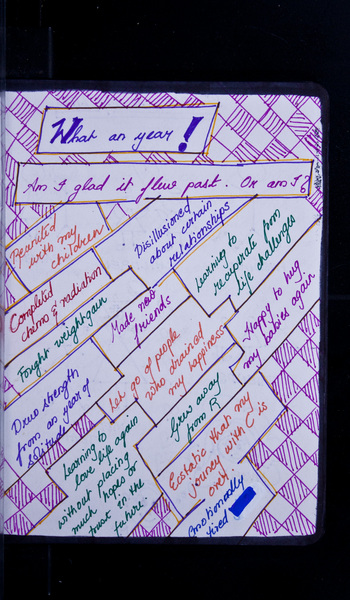 What an year!
Am I glad it flew past. Or am I?
Reunited
with my
children
Disillusioned
about certain
relationships
Learning to
recuperate from
life challenges
Completed
chemo & radiation
Made new
friends
Happy to hug
my babies again
Fought weightgain
Let go of people
who drained
my happiness
Drew strength
from an year of
solitude
Grew away
from R
Learning to
love life again
without placing
much hopes or
trust in the
future
Ecstatic that my
journey with C is
over!
Emotionally
tired